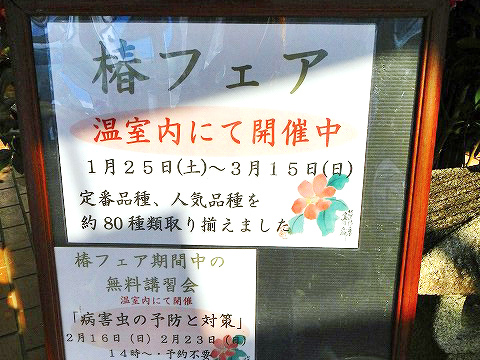 椿フェア
温室内にて開催中
1月25日(土)～3月15日(日)
定番品種、人気品種を
約80種類取り揃えました
椿フェア期間中の
無料講習会
温室内にて開催
「病害虫の予防と対策」
2月16日(日) 2月23日(日)
14時～・予約不要